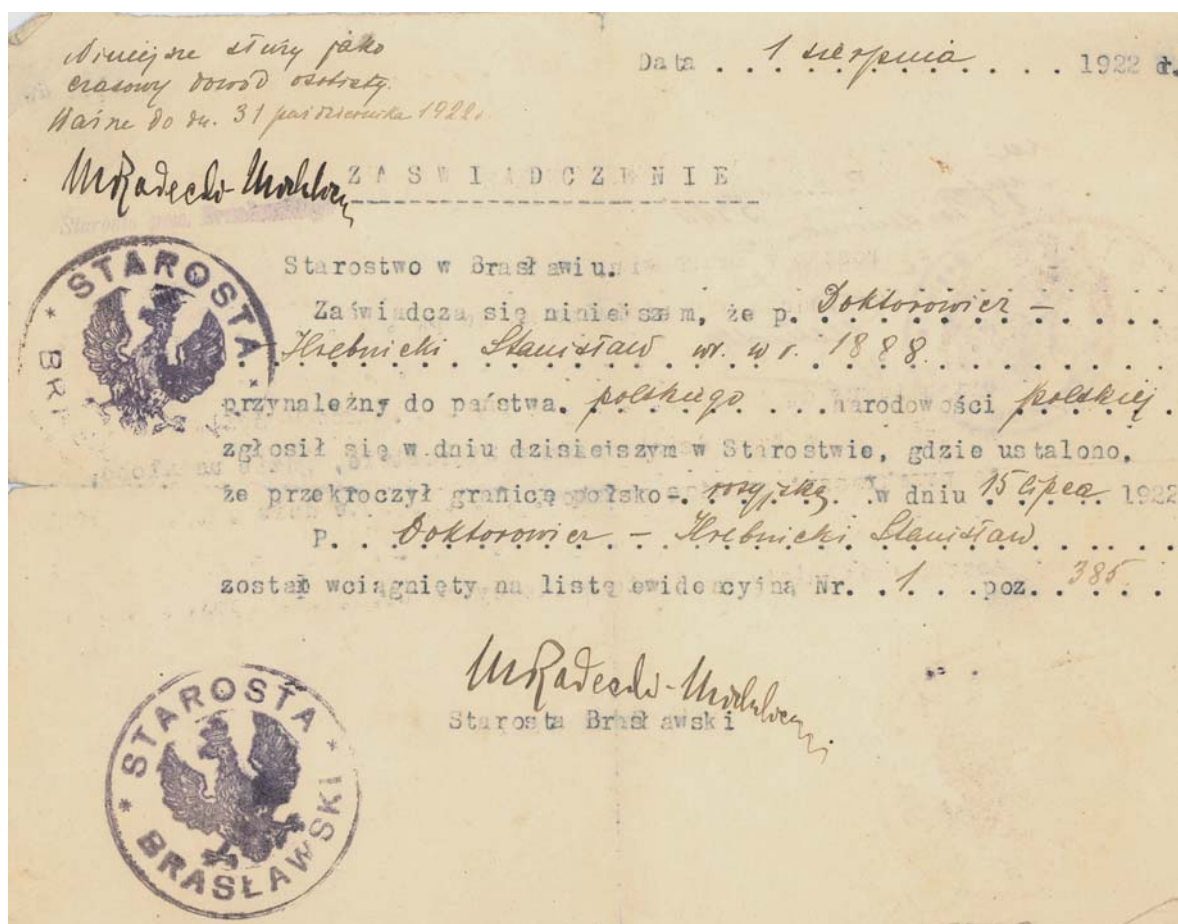 Niniejsze służy jako
czasowy dowód osobisty.
Ważne do dn. 31 października 1922 r.
Data . . 1 sierpnia . . . . 1922 r.
ZASWIADCZENIE
STAROSTA
Starostwo w Brasławiu.
Zaświadcza się niniejszem, że p. Doktorowicz –
Hrebnicki Stanisław ur. w r. 1888.
przynależny do państwa. polskiego . . . narodowości polskiej.
zgłosił się w dniu dzisiejszym w Starostwie, gdzie ustalono,
że przekroczył granicę polsko-. rosyjską . w dniu 15 lipca 1922
P. . . Doktorowicz – Hrebnicki Stanisław
został wciągnięty na listę ewidencyjną Nr. . 1 . . .poz. . 385
Starosta Brasławski
* STAROSTA *
BRASŁAWSKI